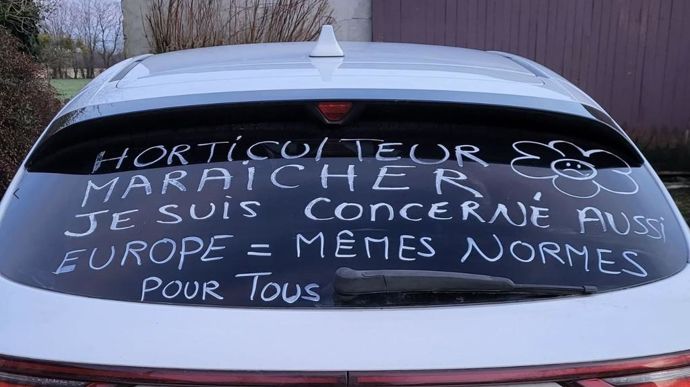 HORTICULTEUR
MARAICHER
JE SUIS CONCERNÉ AUSSI
EUROPE = MÊMES NORMES
POUR TOUS